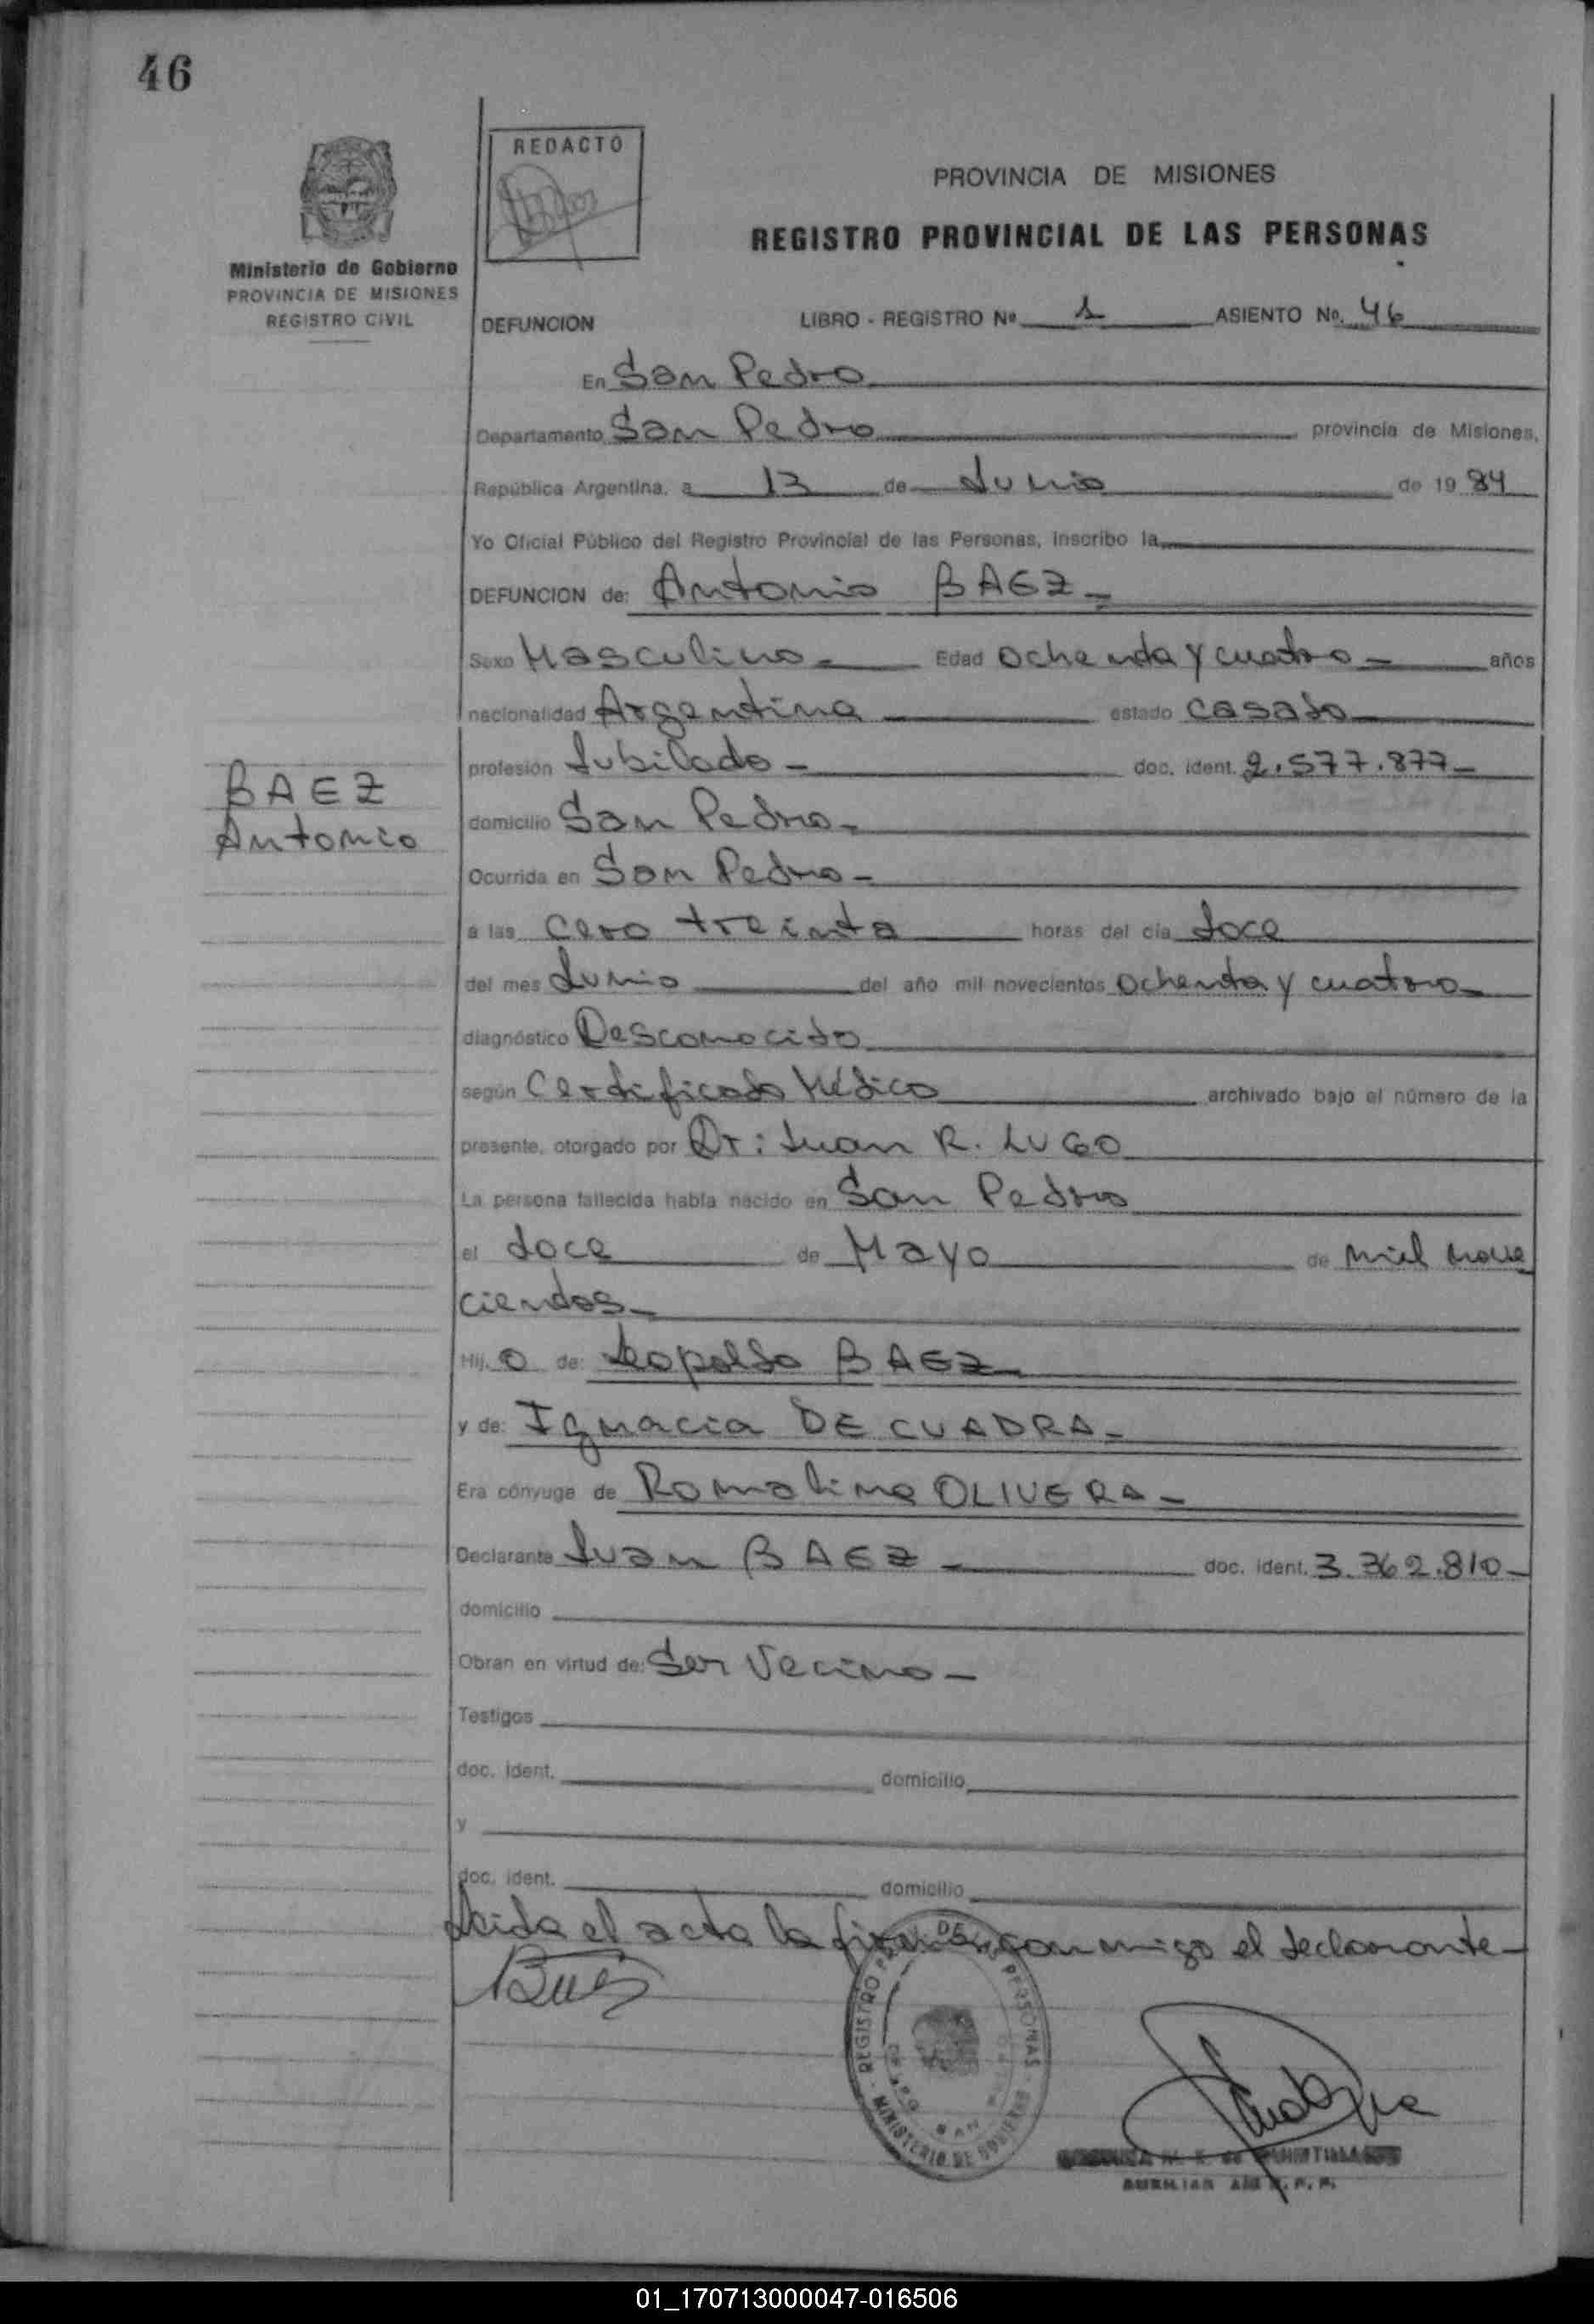 46
REDACTO
PROVINCIA DE MISIONES
REGISTRO PROVINCIAL DE LAS PERSONAS
Ministerio de Gobierno
PROVINCIA DE MISIONES
REGISTRO CIVIL
DEFUNCION LIBRO - REGISTRO Nº 1 ASIENTO No. 46
En San Pedro
Departamento San Pedro provincia de Misiones,
República Argentina, a 13 de Junio de 19 84
Yo Oficial Público del Registro Provincial de las Personas, inscribo la
DEFUNCION de: Antonio BAEZ -
Sexo Masculino - Edad ochenta y cuatro - años
nacionalidad Argentina estado casado
profesión Jubilado - doc. ident. 2.577.877-
BAEZ
Antonio
domicilio San Pedro -
Ocurrida en San Pedro -
a las cero treinta horas del día doce
del mes Junio del año mil novecientos ochenta y cuatro -
diagnóstico Desconocido
según Certificado Médico archivado bajo el número de la
presente, otorgado por Dr: Juan R. LUGO
La persona fallecida había nacido en San Pedro
el doce de Mayo de mil nove
cientos -
Hij o de: Leopoldo BAEZ
y de: Ignacia DE CUADRA -
Era cónyuge de Romalina OLIVERA -
Declarante Juan BAEZ - doc. ident. 3.362.810-
domicilio
Obran en virtud de: Ser Vecino -
Testigos
doc. ident. domicilio
y
doc. ident. domicilio
Leida el acta la firman conmigo el declarante -
Baez
REGISTRO DE PERSONAS
MINISTERIO DE GOBIERNO
SAN
AUXILIAR
01_170713000047-016506